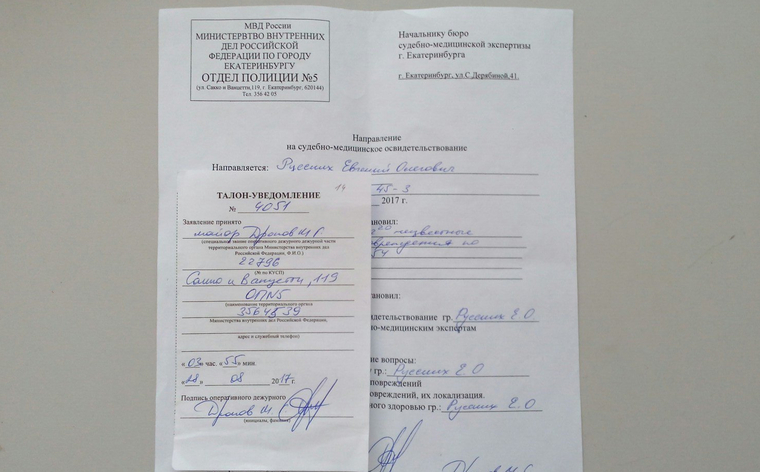 МВД России
МИНИСТЕРВТВО ВНУТРЕННИХ
ДЕЛ РОССИЙСКОЙ
ФЕДЕРАЦИИ ПО ГОРОДУ
ЕКАТЕРИНБУРГУ
ОТДЕЛ ПОЛИЦИИ №5
(ул. Сакко и Ванцетти,119, г. Екатеринбург, 620144)
Тел. 356 42 05
Начальнику бюро
судебно-медицинской экспертизы
г. Екатеринбурга
г. Екатеринбург, ул.С.Дерябиной,41.
Направление
на судебно-медицинское освидетельствование
Направляется: Русских Евгений Олегович
45-3
2017 г.
ановил:
неизвестные
по
54
становил:
идетельствование гр. Русских Е.О
но-медицинским экспертам
ие вопросы:
гр.: Русских Е.О
повреждений
овреждений, их локализация.
ного здоровью гр.: Русских Е.О
14
ТАЛОН-УВЕДОМЛЕНИЕ
№ 4051
Заявление принято
майор Дропов М.Г.
(специальное звание оперативного дежурного дежурной части
территориального органа Министерства внутренних дел
Российской Федерации, Ф.И.О.)
22796
(№ по КУСП)
Сакко и Ванцетти, 119
ОП№5
(наименование территориального органа
3564839
Министерства внутренних дел Российской Федерации,
адрес и служебной телефон)
«03» час. «55» мин.
«28» 08 2017 г.
Подпись оперативного дежурного
Дропов М.
(инициалы, фамилия)